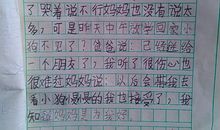 了哭着说不行妈妈也没有说太
多，可是明天中午放学回家小
狗不见了？爸爸说：已经送给
一个朋友了，我听了很伤心也
很难过妈妈说：以后会带我去
看小狗最最的我也接受了，我
知道妈妈是为我好